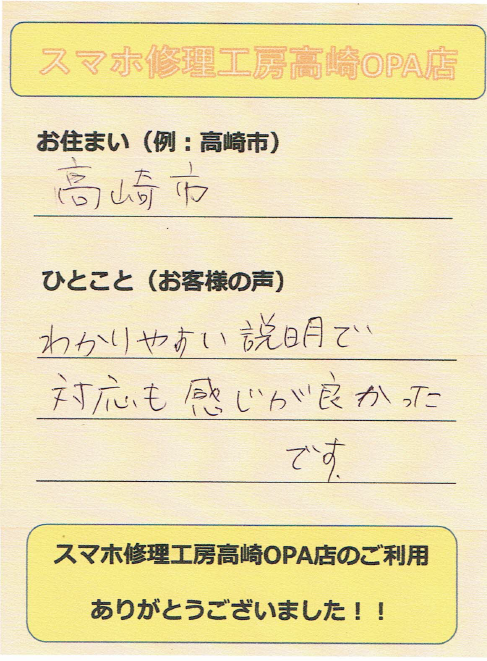 スマホ修理工房高崎OPA店
お住まい（例：高崎市）
高崎市
ひとこと（お客様の声）
わかりやすい説明で
対応も感じが良かった
です.
スマホ修理工房高崎OPA店のご利用
ありがとうございました！！